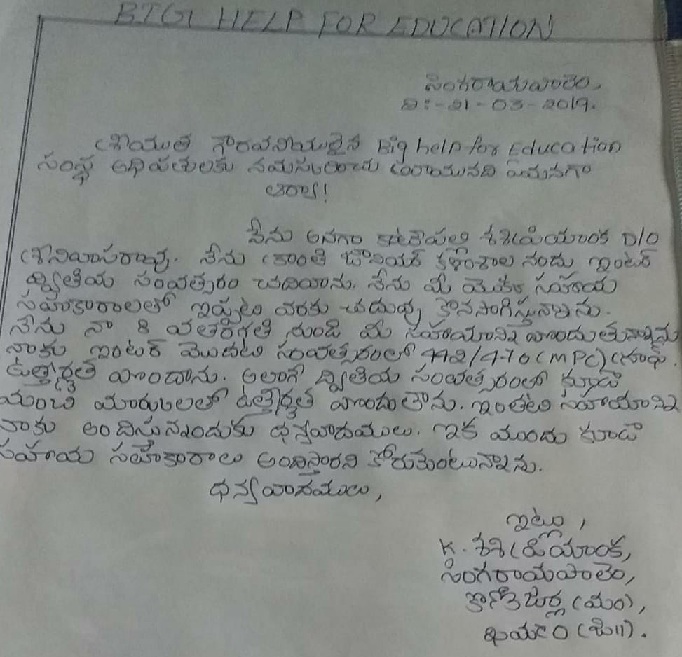 BIG HELP FOR EDUCATION
సింగరాయపాలెం,
ది:-21-03-2019.
శ్రీయుత గౌరవనీయులైన Big help for Education
సంస్థ అధిపతులకు నమస్కరించి వ్రాయునది ఏమనగా
ఆర్యా!
నేను అనగా కటికెపల్లి శశిప్రియాంక D/O
శ్రీనివాసరావు. నేను క్రాంతి జూనియర్ కళాశాల నందు ఇంటర్
ద్వితీయ సంవత్సరం చదివాను. నేను మీ యొక్క సహాయ
సహకారాలతో ఇప్పటి వరకు చదువు కొనసాగిస్తున్నాను.
నేను నా 8 వ తరగతి నుండి మీ సహాయాన్ని పొందుతున్నాను
నాకు ఇంటర్ మొదటి సంవత్సరంలో 442/470 (MPC) గ్రూప్.
ఉత్తీర్ణత పొందాను. అలాగే ద్వితీయ సంవత్సరంలో కూడా
మంచి మార్కులతో ఉత్తీర్ణత పొందుతాను. ఇంతటి సహాయాన్ని
నాకు అందిస్తున్నందుకు ధన్యవాదములు. ఇక ముందు కూడా
సహాయ సహకారాలు అందిస్తారని కోరుకుంటున్నాను.
ధన్యవాదములు,
ఇట్లు,
K. శశిప్రియాంక,
సింగరాయపాలెం,
కొణిజర్ల (మం),
ఖమ్మం (జి||).